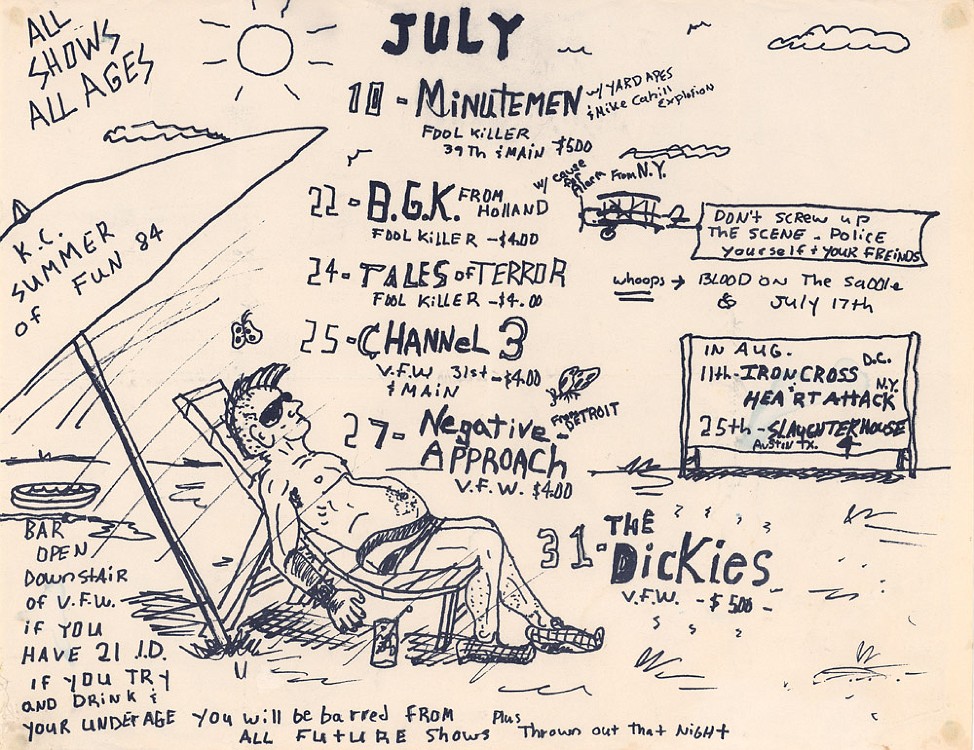 ALL
SHOWS
ALL AGES
JULY
10 - MINUTEMEN w/ YARD APES
& Mike Cahill
Explosion
FOOL KILLER
39Th & MAIN $500
22 - B.G.K. FROM
HOLLAND
w/ Cause
For
Alarm From N.Y.
FOOL KILLER - $4.00
DON'T SCREW UP
THE SCENE - POLICE
yourself + YOUR FREINDS
K.C.
SUMMER
of FUN 84
24 - TALES of TERROR
FOOL KILLER - $4.00
whoops → BLOOD ON The Saddle
& July 17th
25 - CHANNEL 3
V.F.W. 31st - $4.00
& MAIN
IN AUG.
11th - IRONCROSS D.C.
& HEARTATTACK N.Y.
25th - SLAUGHTERHOUSE
4
AUSTIN TX.
27 - Negative -
APPROACh
From
DETROIT
V.F.W. $4.00
31 - THE
DicKies
V.F.W. - $500 -
BAR
OPEN
DownSTAIR
of V.F.W.
if YOU
HAVE 21 I.D.
IF YOU TRY
AND DRINK &
YOUR UNDERAGE YOU will be barred FROM
ALL FUTURE Shows
Plus
Thrown out That NIGHT